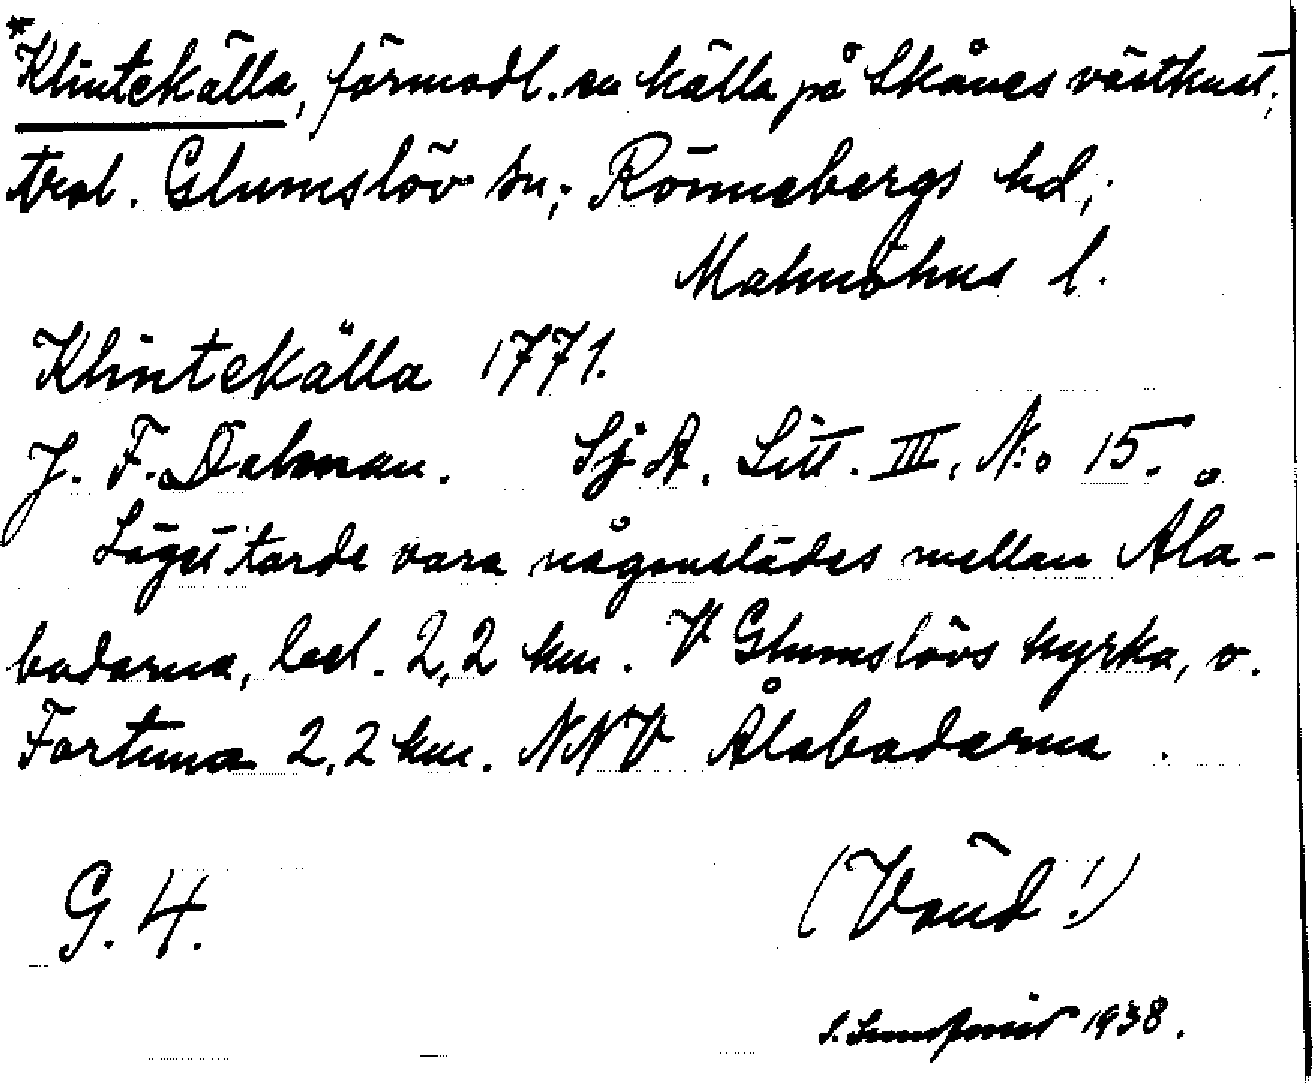 *Klintekälla, förmodl. en källa på Skånes västkust,
trol. Glumslöv sn, Rönnebergs hd,
Malmöhus l.
Klintekälla 1771.
J. F. Dalman. Sj A. Litt. III. N:o 15.
Läget torde vara någonstädes mellan Åla-
bodarna, bel. 2,2 km. V Glumslövs kyrka, o.
Fortuna 2,2 km. NNV Ålabodarna.
G. 4.
(Vänd!)
S. 1938.